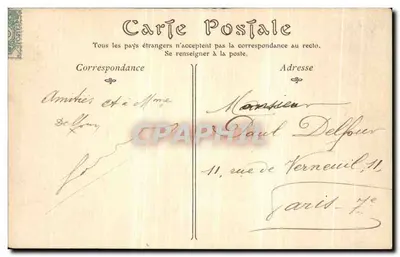 Carte Postale
Tous les pays étrangers n'acceptent pas la correspondance au recto.
Se renseigner à la poste.
Correspondance
Adresse
Amitiés et à Mme
Monsieur
Paul Delfour
11, rue de Verneuil, 11
Paris - 7e
CPAPHIL